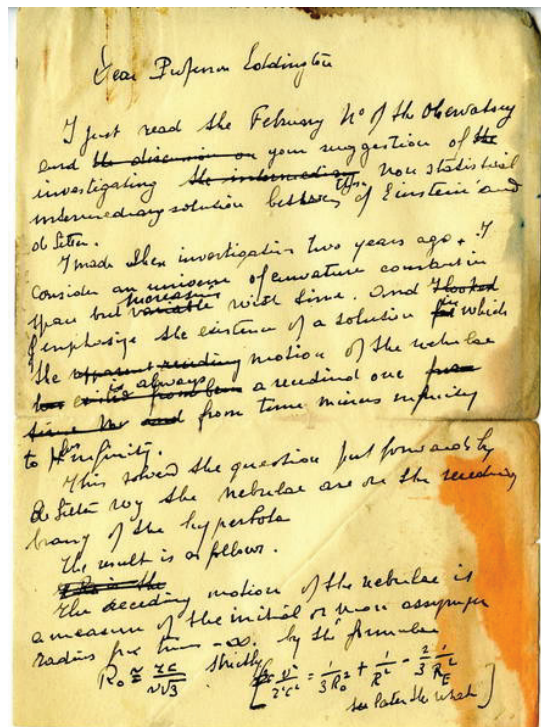 Dear Professor Eddington
I just read the February N° of the Observatory
and the discussion on your suggestion of the
investigating the intermediary non statistical
intermediary solution between those of Einstein and
de Sitter.
I made these investigations two years ago. I
consider an universe of curvature constant in
space but variable increasing with time. And I
I emphasize the existence of a solution in which
the apparent receding motion of the nebulae
is always a receding one
time from time minus infinity
to plus infinity.
This solved the question put forwards by
de Sitter wy the nebulae are on the receding
brany of the hyperbola
The result is as follows.
The receding motion of the nebulae is
a measure of the initial or
radius for time -∞. by the formulae
R₀ ≅ rc/v√3 strictly [v²/r²c² = 1/3R₀² + 1/R² - 2/3 1/R_E²
see later the what]